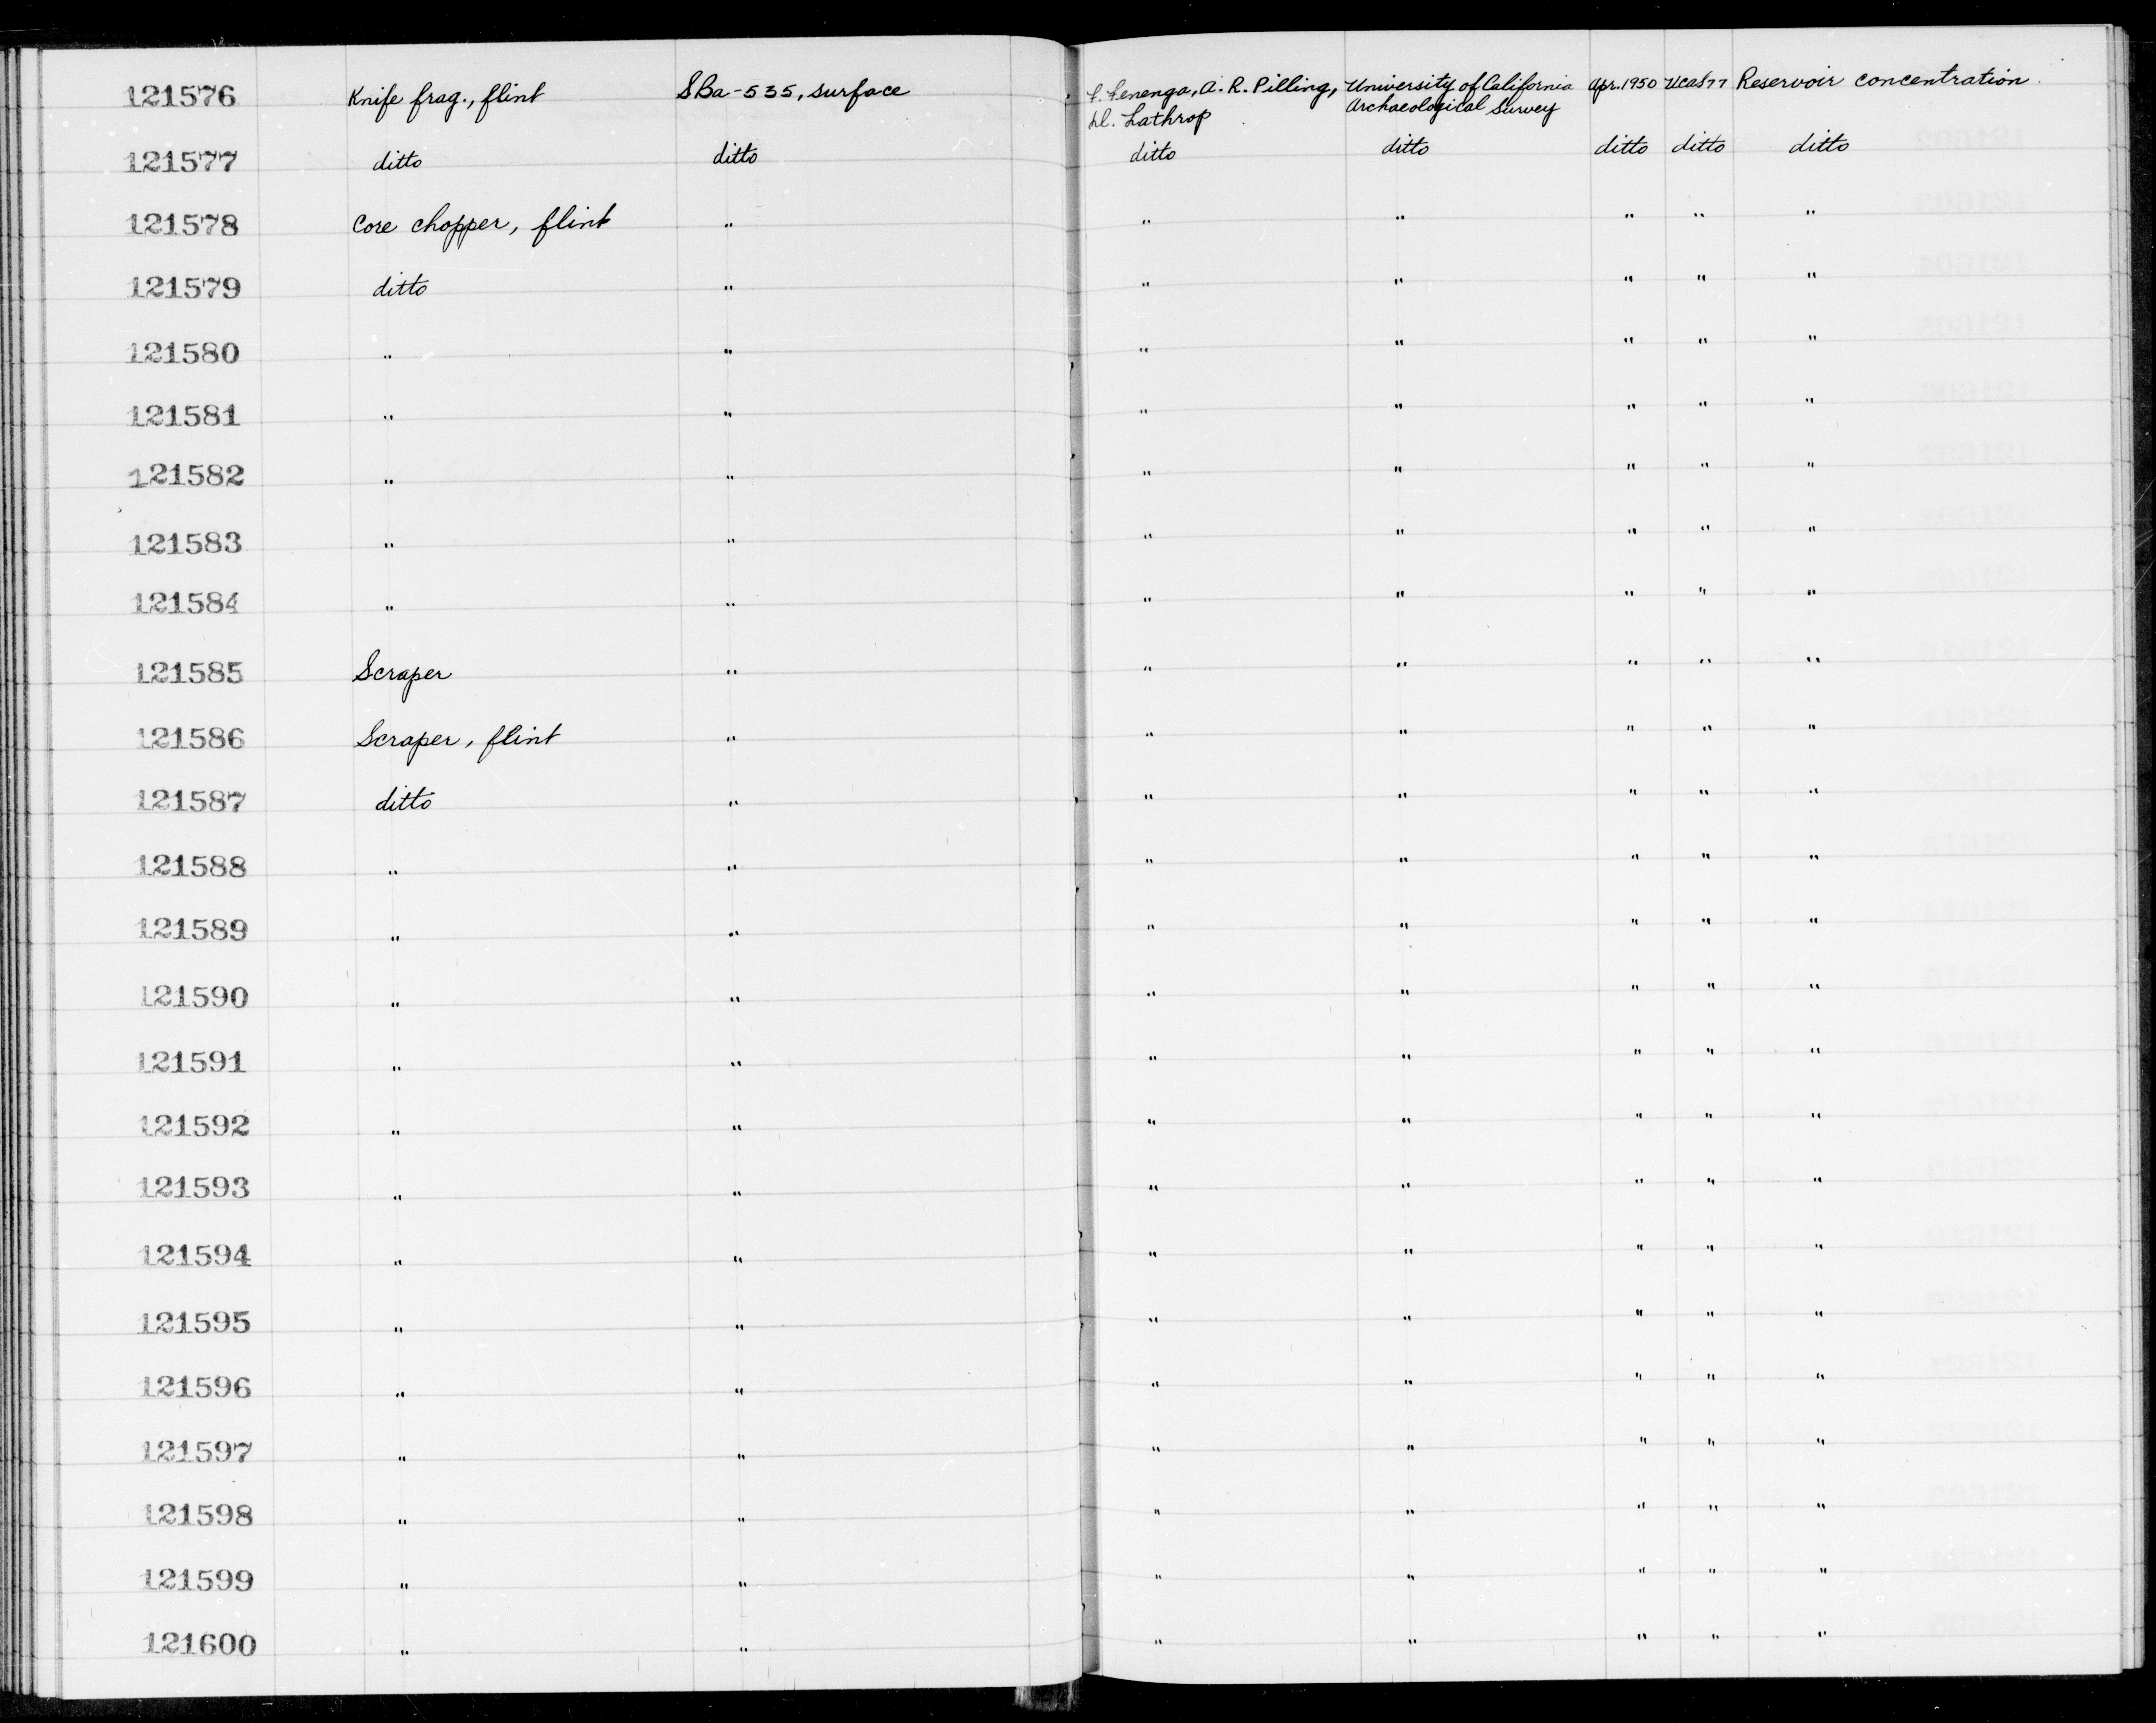 121576 Knife frag., flint SBa-535, surface F. Fenenga, A. R. Pilling, University of California Apr. 1950 UCAS77 Reservoir concentration.
D. Lathrop Archaeological Survey
121577 ditto ditto ditto ditto ditto ditto ditto
121578 Core chopper, flint " " " " " "
121579 ditto " " " " " "
121580 " " " " " " "
121581 " " " " " " "
121582 " " " " " " "
121583 " " " " " " "
121584 " " " " " " "
121585 Scraper " " " " " "
121586 Scraper, flint " " " " " "
121587 ditto " " " " " "
121588 " " " " " " "
121589 " " " " " " "
121590 " " " " " " "
121591 " " " " " " "
121592 " " " " " " "
121593 " " " " " " "
121594 " " " " " " "
121595 " " " " " " "
121596 " " " " " " "
121597 " " " " " " "
121598 " " " " " " "
121599 " " " " " " "
121600 " " " " " " "